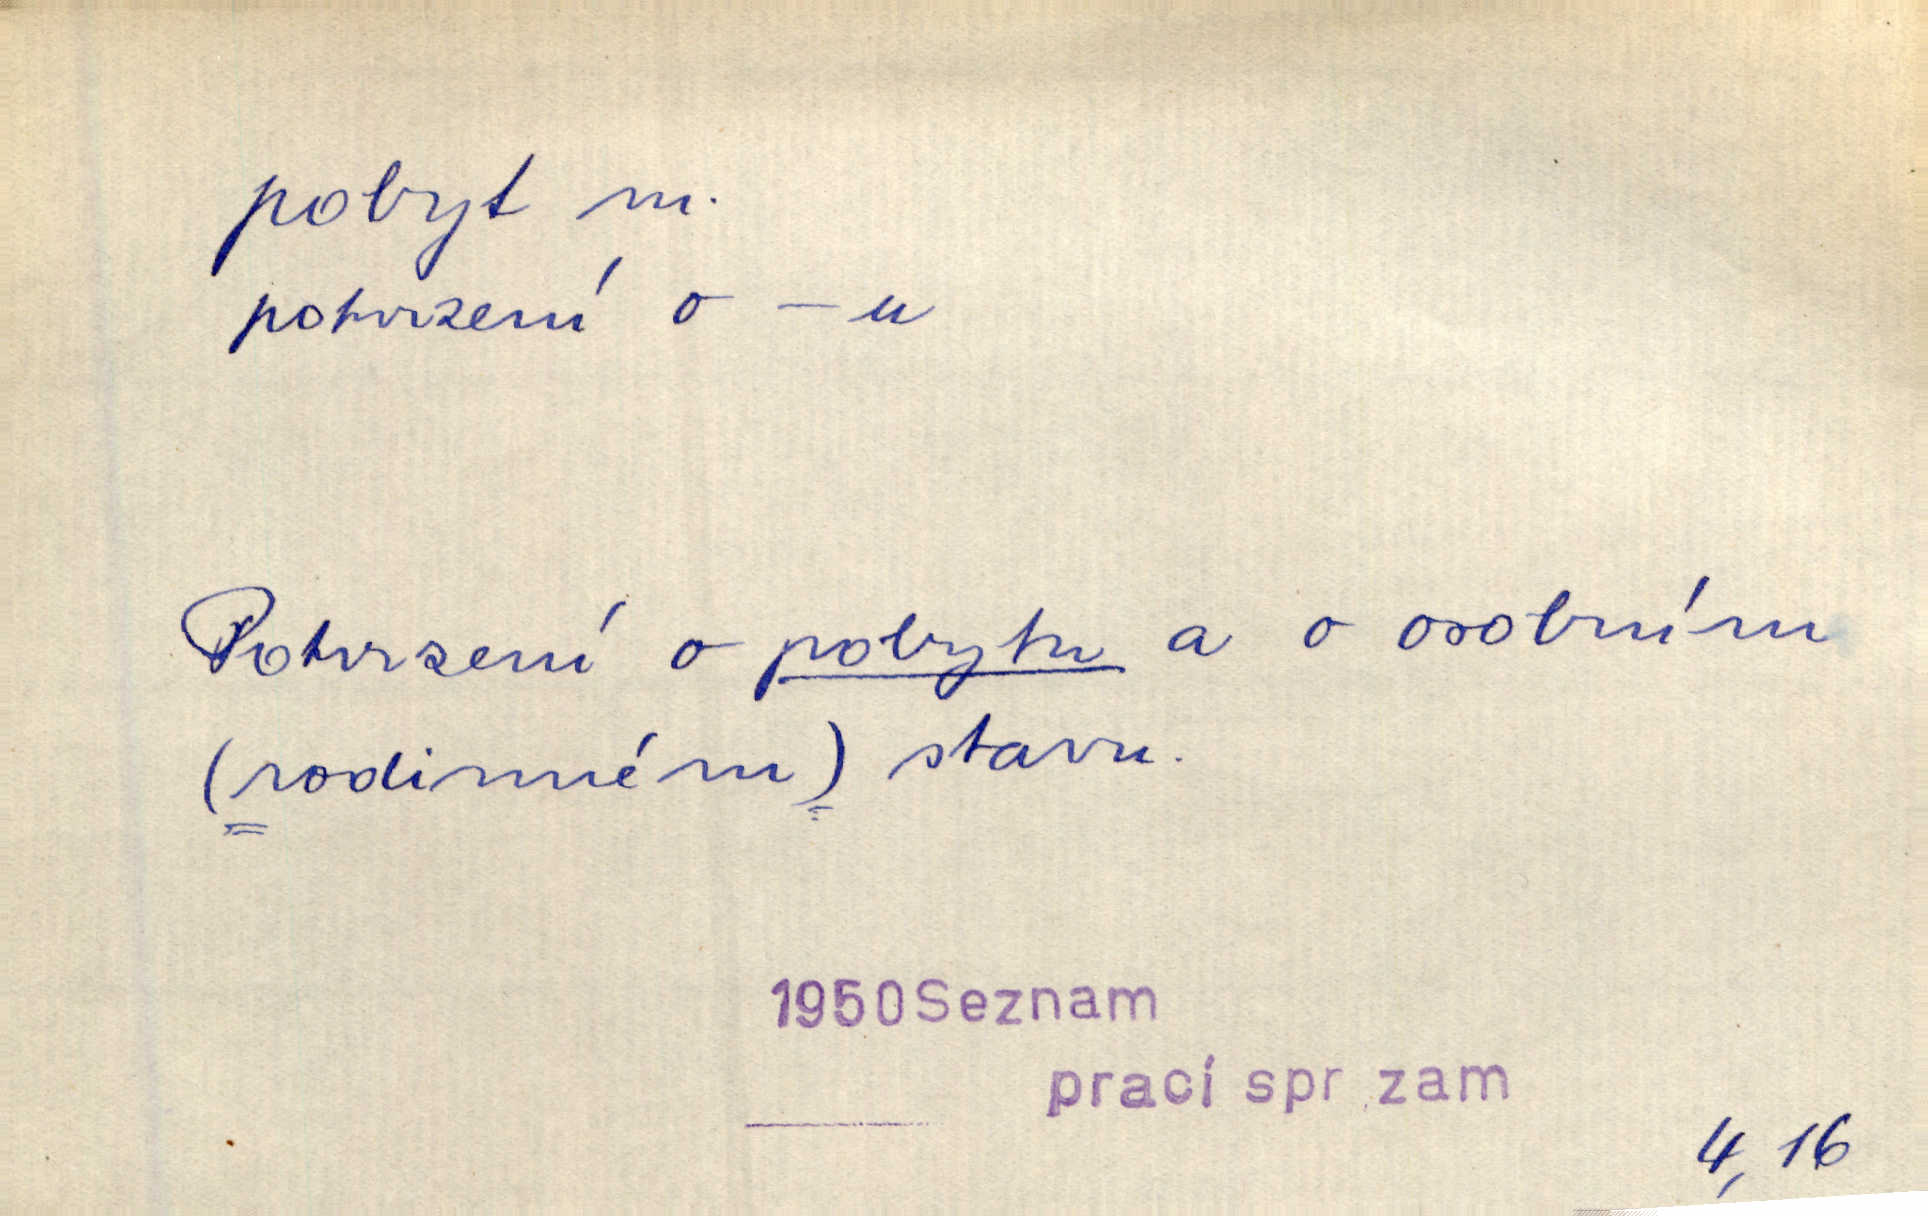 pobyt m.
potvrzení o -u
Potvrzení o pobytu a o osobním
(rodinném) stavu.
1950 Seznam
prací spr zam
4, 16